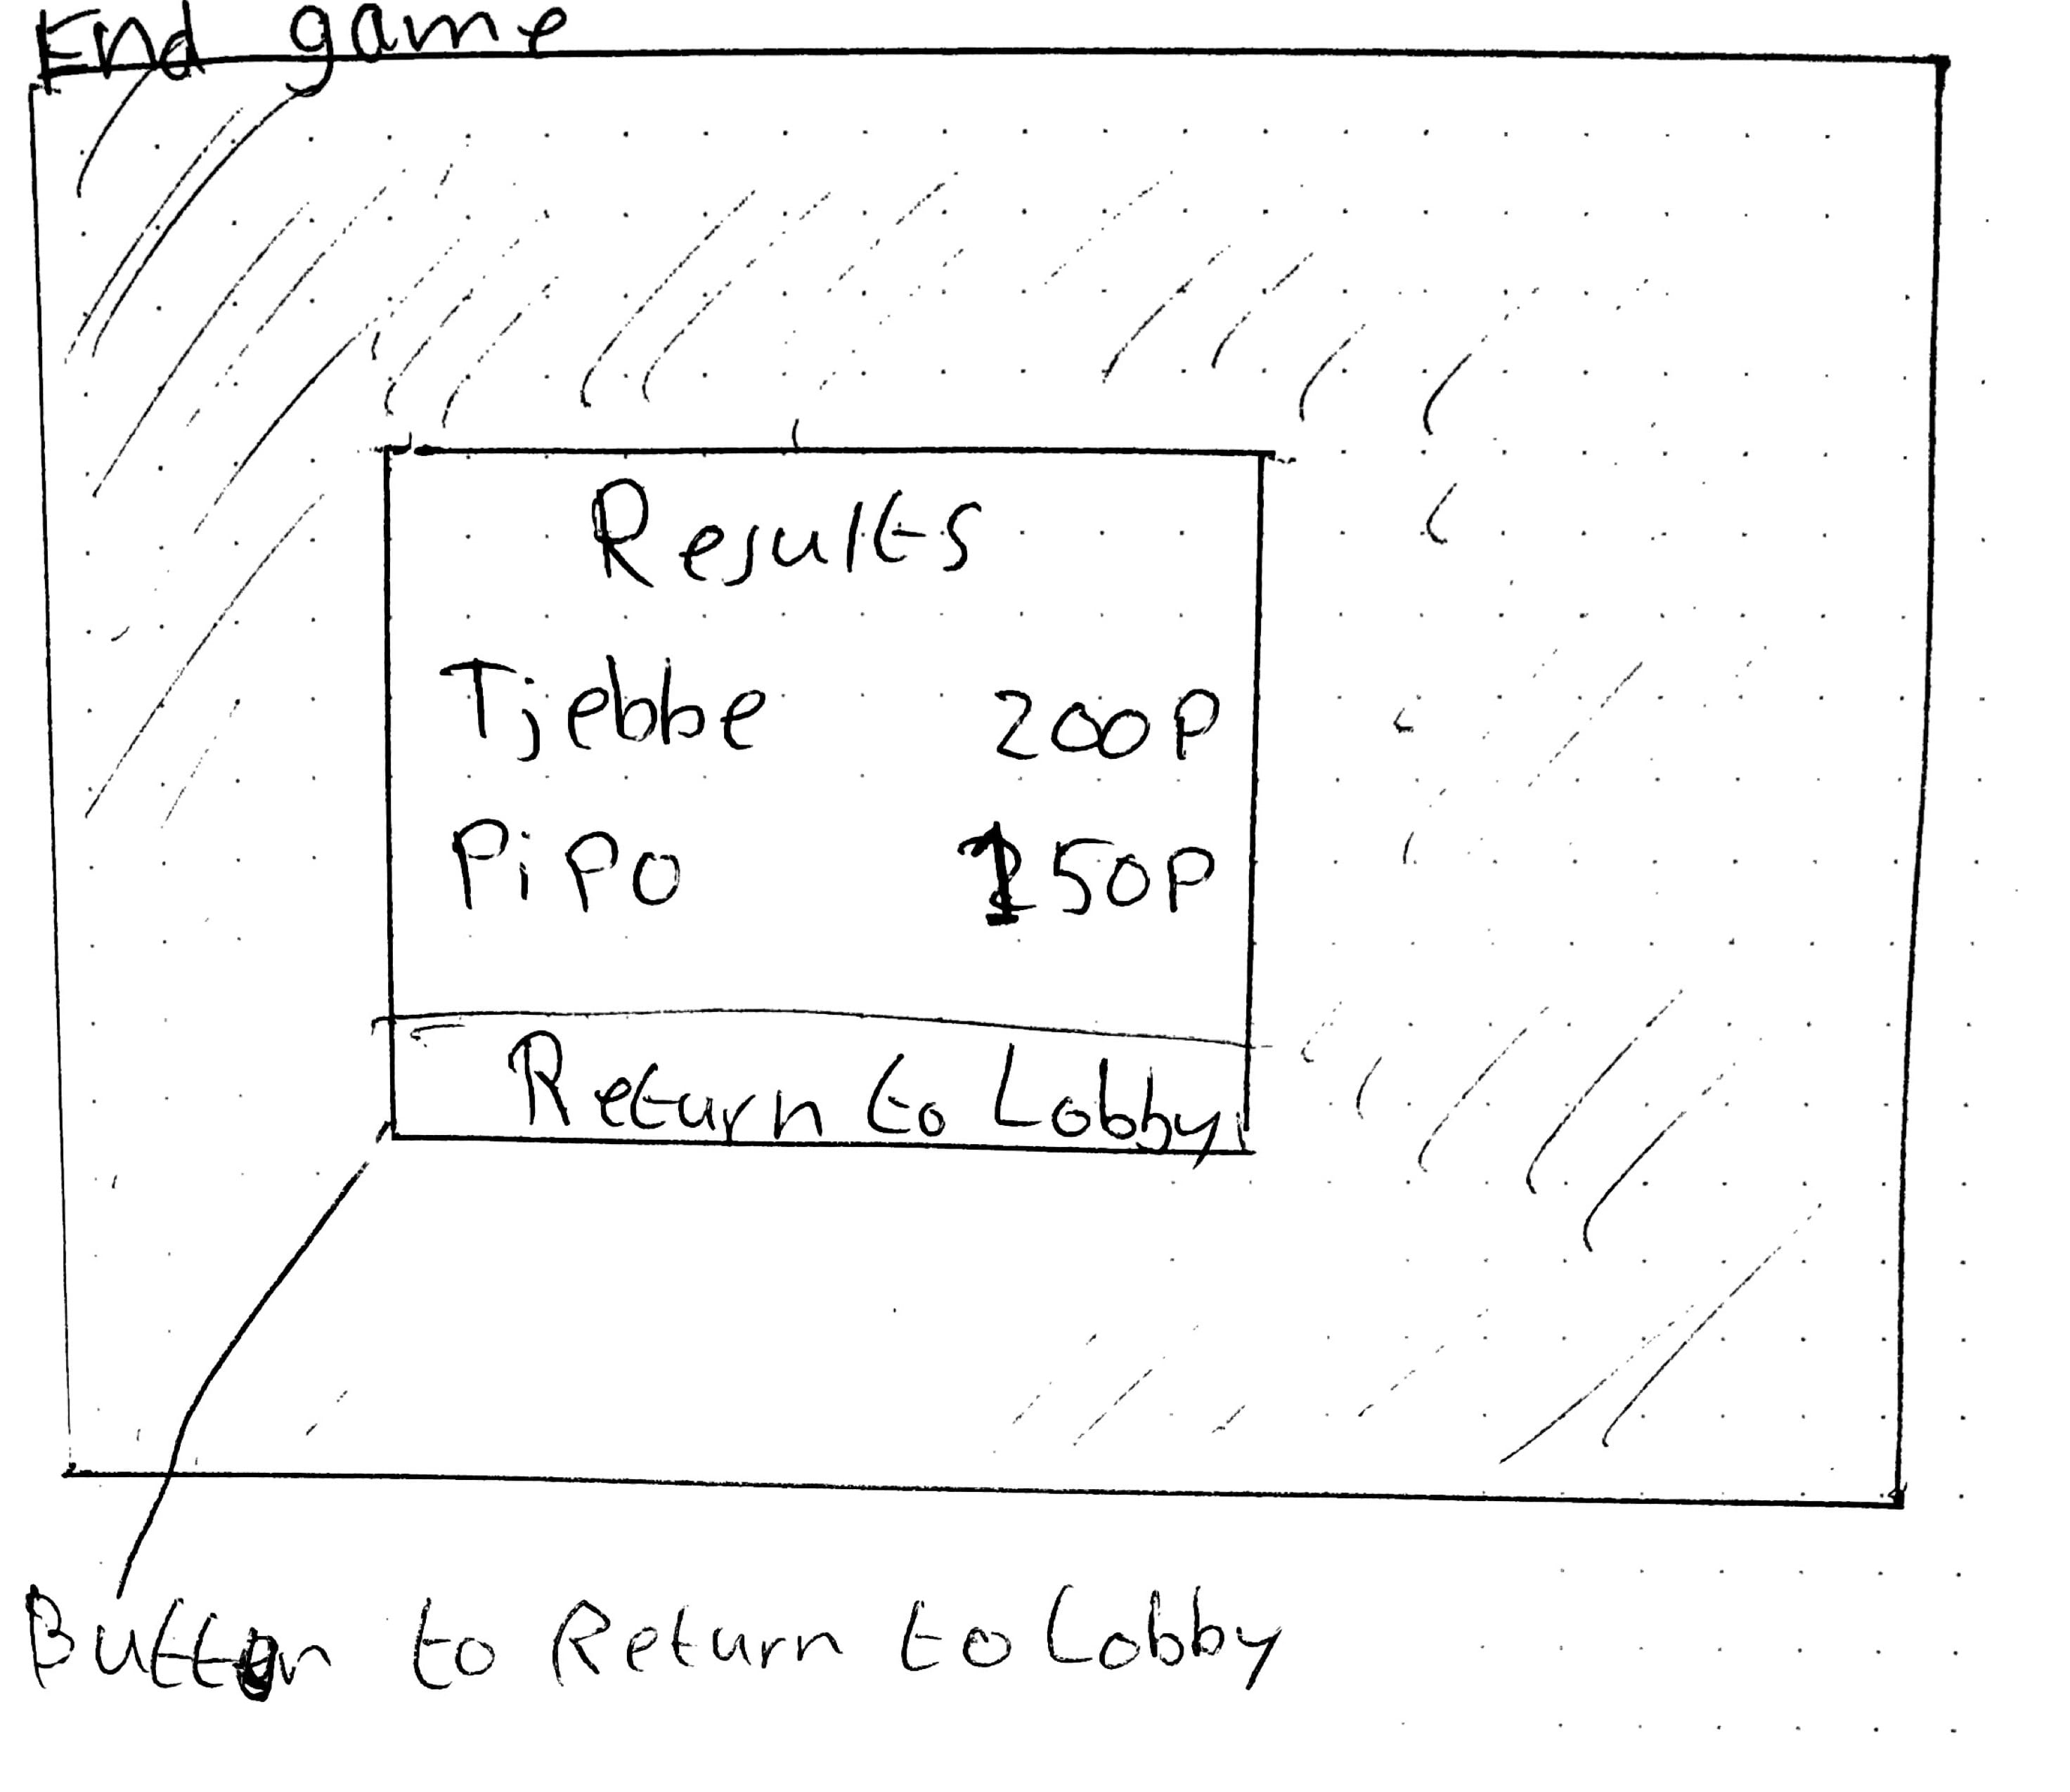 End game
Results
Tjebbe 200P
PiPo 150P
Return to Lobby
Button to Return to Lobby